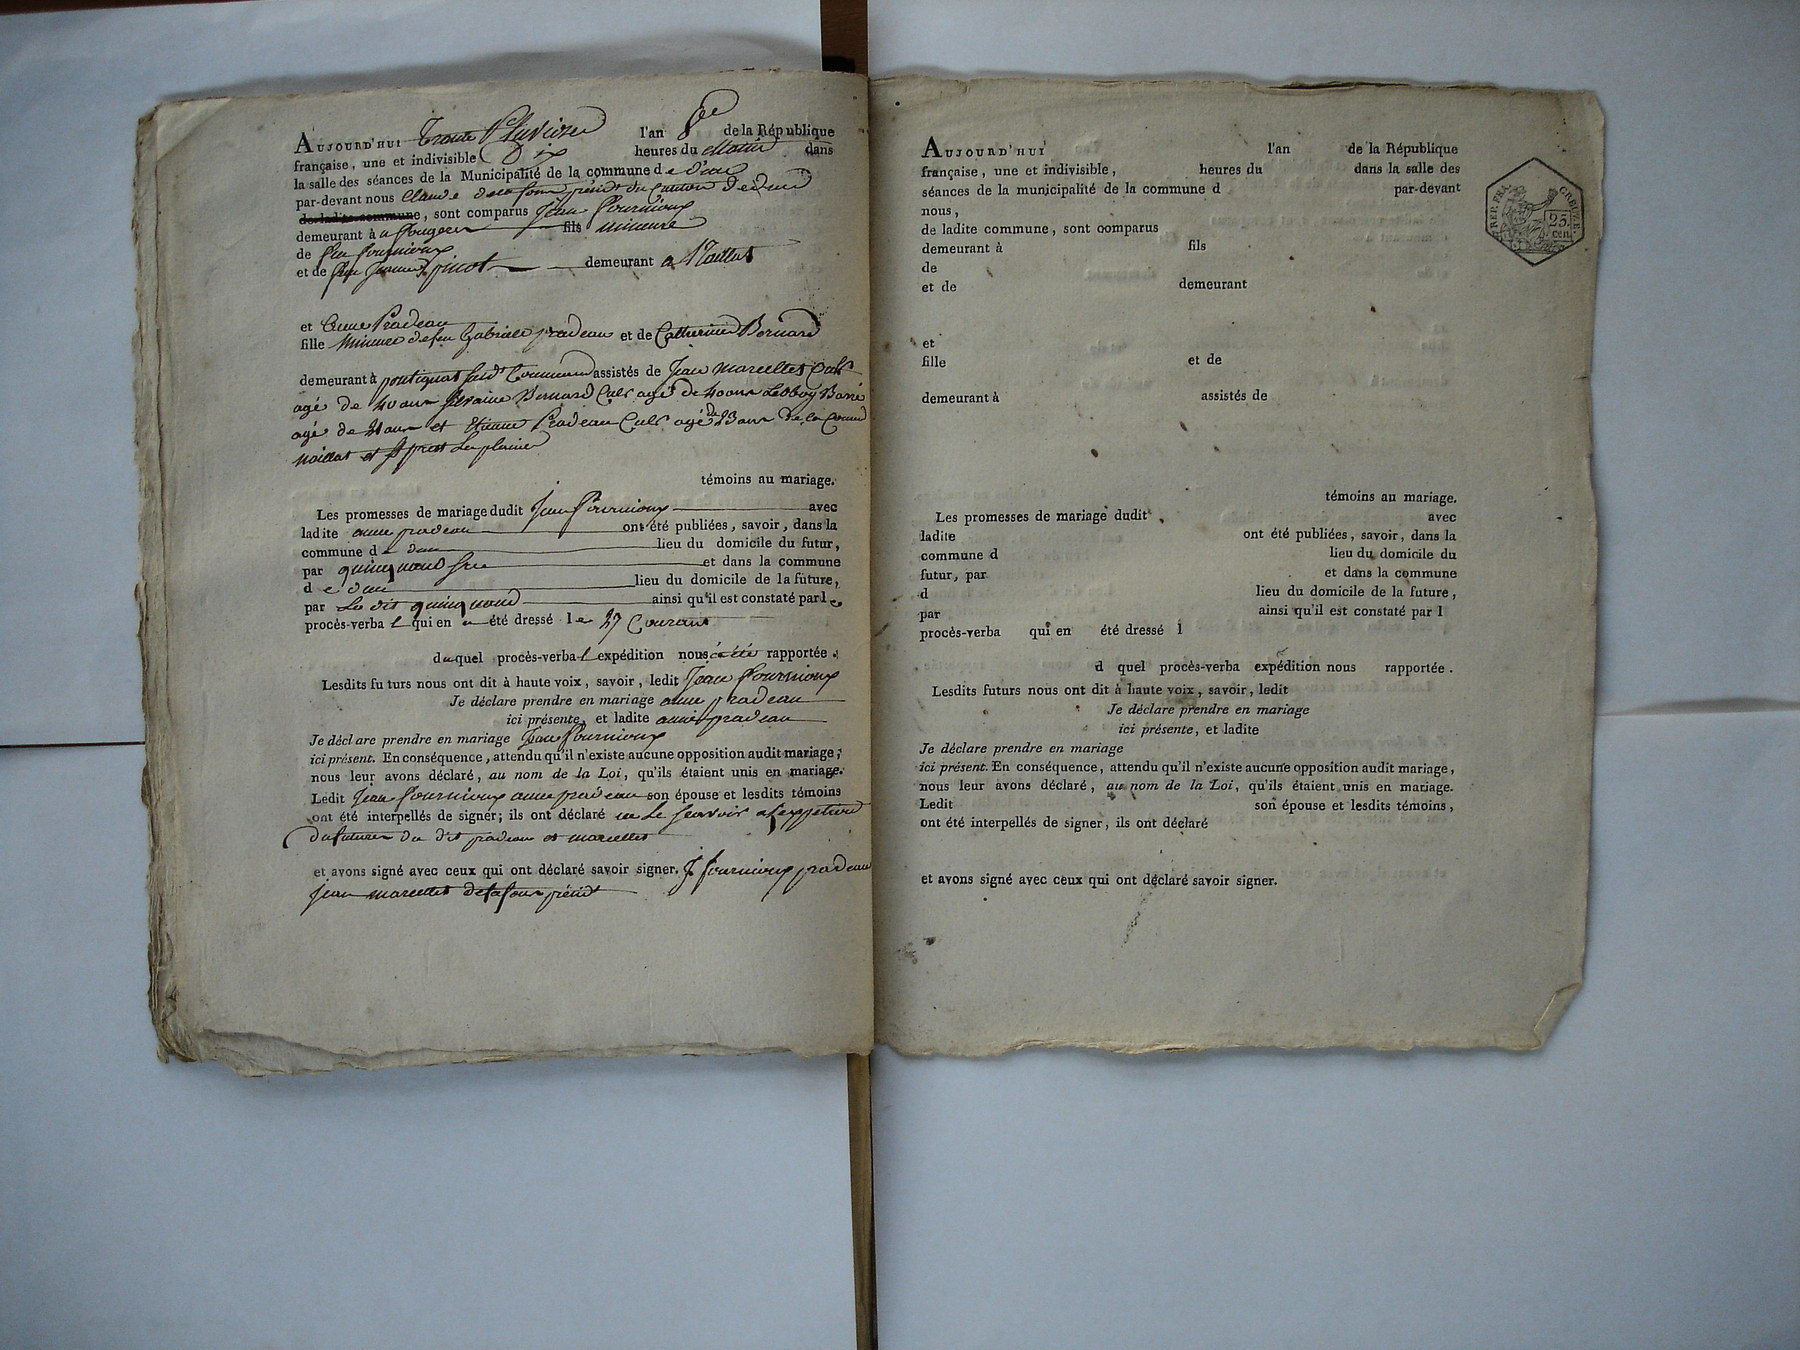 AUJOURD'HUI trente Pluviose l'an 8e de la République
française, une et indivisible Dix heures du Matin dans
la salle des séances de la Municipalité de la commune de d'un
par-devant nous Claude Delafour présidt du Canton de dun
de ladite commune, sont comparus Jean fournioux
demeurant à fougeres fils mineure
de feu fournioux
et de feu Jeanne pinot demeurant a Naillat
et Anne Pradeau
fille Mineure de feu Gabriele pradeau et de Catherine Bernard
demeurant à pontignat susd Commune assistés de Jean Marcellet Cult
agé de 40 ans Silvaine Bernard Cult agé de 40 ans
agé de ans et Etienne Pradeau Cult agé de 23 ans de la Comm
Naillat et St priest la plaine
témoins au mariage.
Les promesses de mariage dudit Jean fournioux avec
ladite anne pradeau ont été publiées, savoir, dans la
commune de dun lieu du domicile du futur,
par quinquaud et dans la commune
de dun lieu du domicile de la future,
par Le dit quinquaud ainsi qu'il est constaté par le
procès-verbal qui en a été dressé le 27 Courant
duquel procès-verbal expédition nous a été rapportée.
Lesdits futurs nous ont dit à haute voix, savoir, ledit Jean fournioux
Je déclare prendre en mariage anne pradeau
ici présente, et ladite anne pradeau
Je déclare prendre en mariage Jean fournioux
ici présent. En conséquence, attendu qu'il n'existe aucune opposition audit mariage;
nous leur avons déclaré, au nom de la Loi, qu'ils étaient unis en mariage.
Ledit Jean fournioux anne pradeau son épouse et lesdits témoins
ont été interpellés de signer; ils ont déclaré ne Le scavoir
du futur du dit pradeau et marcellet
et avons signé avec ceux qui ont déclaré savoir signer. J fournioux pradeau
Jean marcellet Delafour présidt
AUJOURD'HUI l'an de la République
française, une et indivisible, heures du dans la salle des
séances de la municipalité de la commune d par-devant
nous,
de ladite commune, sont comparus
demeurant à fils
de
et de demeurant
et
fille et de
demeurant à assistés de
témoins au mariage.
Les promesses de mariage dudit avec
ladite ont été publiées, savoir, dans la
commune d lieu du domicile du
futur, par et dans la commune
d lieu du domicile de la future,
par ainsi qu'il est constaté par l
procès-verba qui en été dressé l
d quel procès-verba expédition nous rapportée.
Lesdits futurs nous ont dit à haute voix, savoir, ledit
Je déclare prendre en mariage
ici présente, et ladite
Je déclare prendre en mariage
ici présent. En conséquence, attendu qu'il n'existe aucune opposition audit mariage,
nous leur avons déclaré, au nom de la Loi, qu'ils étaient unis en mariage.
Ledit son épouse et lesdits témoins,
ont été interpellés de signer, ils ont déclaré
et avons signé avec ceux qui ont déclaré savoir signer.
REP. FRA.
CREUZE.
25.
cen.